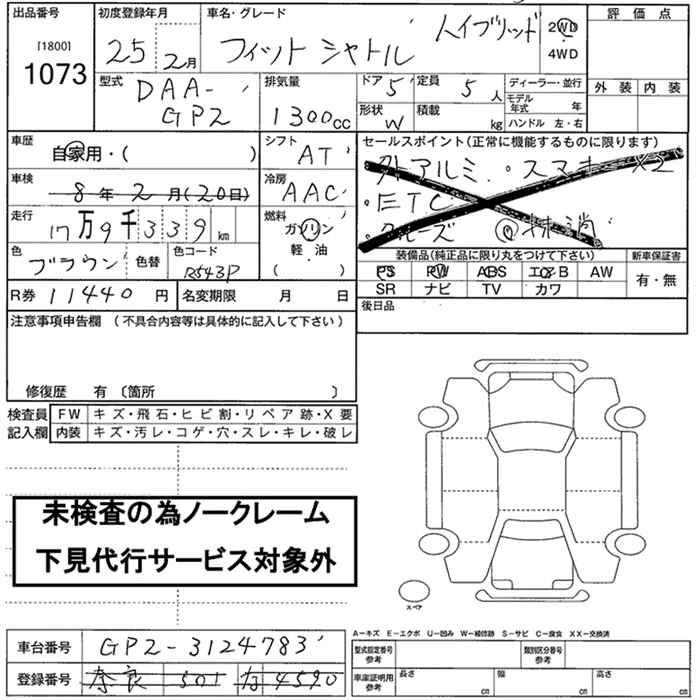 出品番号 初度登録年月 車名・グレード 評価点
[1800] 1073 25年2月 フィットシャトル ハイブリッド 2WD 4WD
型式 DAA-GP2 排気量 1300cc ドア 5 定員 5人 ディーラー・並行 外装 内装
形状 W 積載 kg モデル年式 年
ハンドル 左・右
車歴 自家用・( ) シフト AT セールスポイント(正常に機能するものに限ります)
・外アルミ ・スマキーX2
車検 8年2月(20日) 冷房 AAC ・ETC
走行 17万9千339km 燃料 ガソリン 軽・油 ( ) ・クルーズ 抹消
色 ブラウン 色替 色コード R543P 装備品(純正品に限り丸をつけて下さい) 新車保証書
PS PW ABS エアB AW 有・無
R券 11440円 名変期限 月 日 SR ナビ TV カワ
注意事項申告欄(不具合内容等は具体的に記入して下さい) 後日品
修復歴 有〔箇所 〕
検査員 FW キズ・飛石・ヒビ割・リペア跡・X要
記入欄 内装 キズ・汚レ・コゲ・穴・スレ・キレ・破レ
未検査の為ノークレーム
下見代行サービス対象外
スペア
A-キズ E-エクボ U-凹み W-補修跡 S-サビ C-腐食 XX-交換済
車台番号 GP2-3124783 型式指定番号 参考 類別区分番号 参考
登録番号 奈良 501 な 4590 車庫証明用 参考 長さ cm 幅 cm 高さ cm